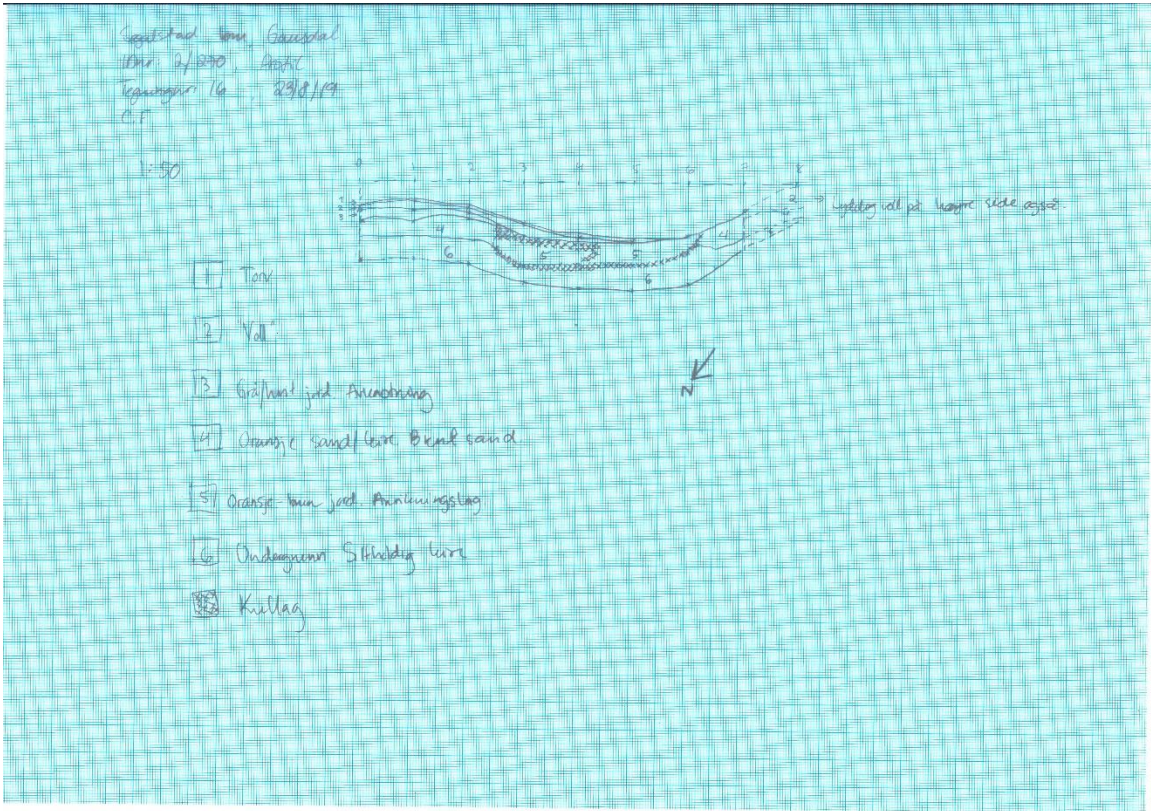 Segalstad bru, Gausdal
IDnr. 2/290, Profil
Tegningnr. 16 23/8/19
C.F.
1:50
0 1 2 3 4 5 6 7 8
1
2
3
4
6
5
5
6
4
2
tydelig voll på høyre side også.
N
1 Torv
2 "Voll"
3 Grå/hvit jord Anrikning
4 Oransje sand/leire Brent sand
5 Oransje-brun jord. Anrikningslag
6 Undergrunn Siltholdig leire
Kullag